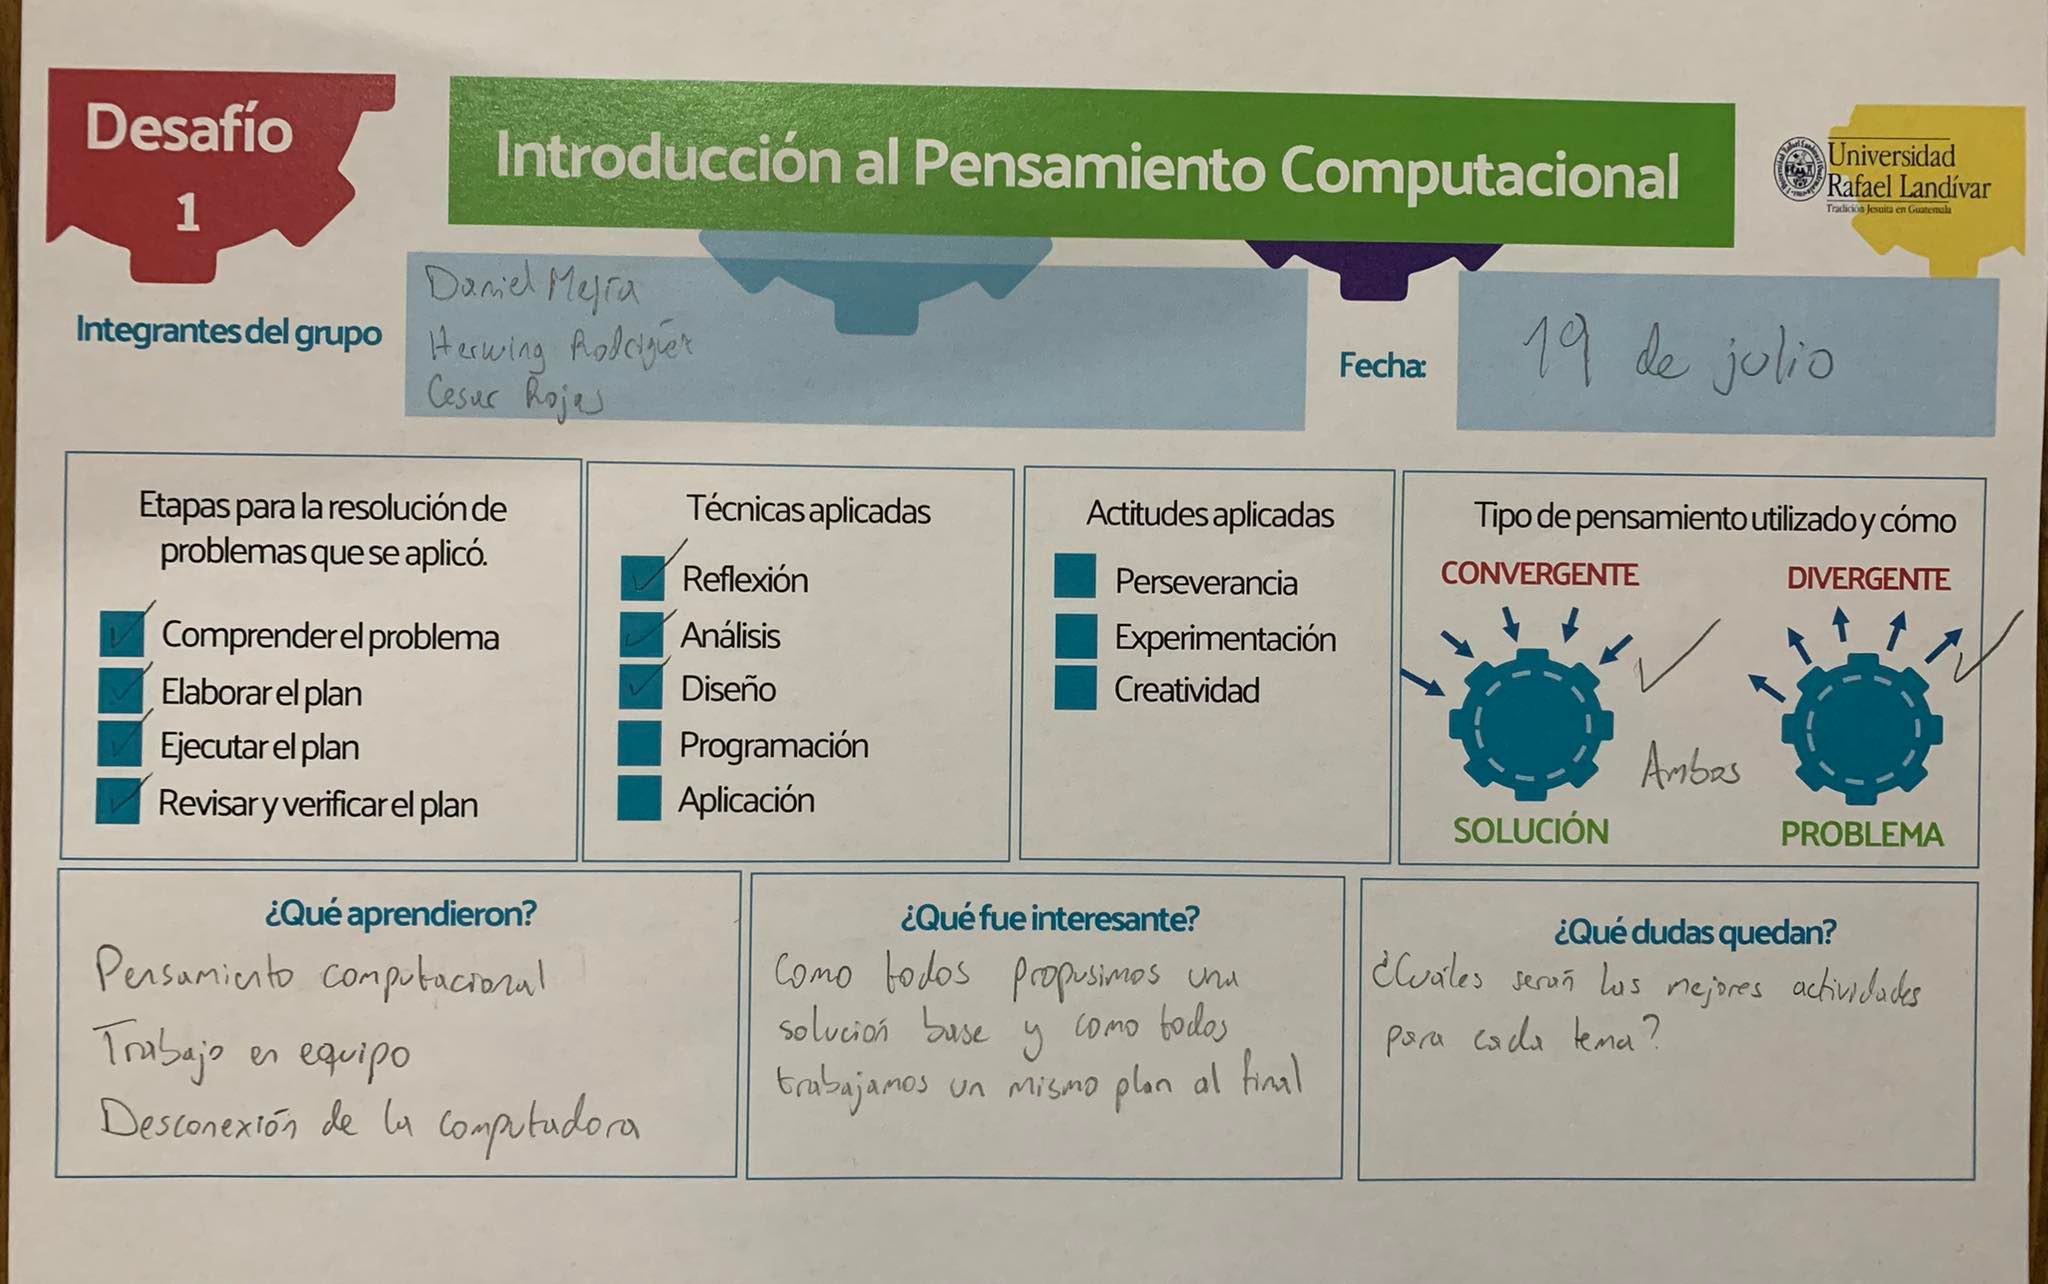 Desafío
1
Introducción al Pensamiento Computacional
Universidad
Rafael Landívar
Tradición Jesuita en Guatemala
Integrantes del grupo
Daniel Mejía
Herwing Rodríguez
Cesar Rojas
Fecha:
19 de julio
Etapas para la resolución de
problemas que se aplicó.
Comprender el problema
Elaborar el plan
Ejecutar el plan
Revisar y verificar el plan
Técnicas aplicadas
Reflexión
Análisis
Diseño
Programación
Aplicación
Actitudes aplicadas
Perseverancia
Experimentación
Creatividad
Tipo de pensamiento utilizado y cómo
CONVERGENTE
DIVERGENTE
Ambos
SOLUCIÓN
PROBLEMA
¿Qué aprendieron?
Pensamiento computacional
Trabajo en equipo
Desconexión de la computadora
¿Qué fue interesante?
Como todos propusimos una
solución base y como todos
trabajamos un mismo plan al final
¿Qué dudas quedan?
¿Cuáles serán las mejores actividades
para cada tema?